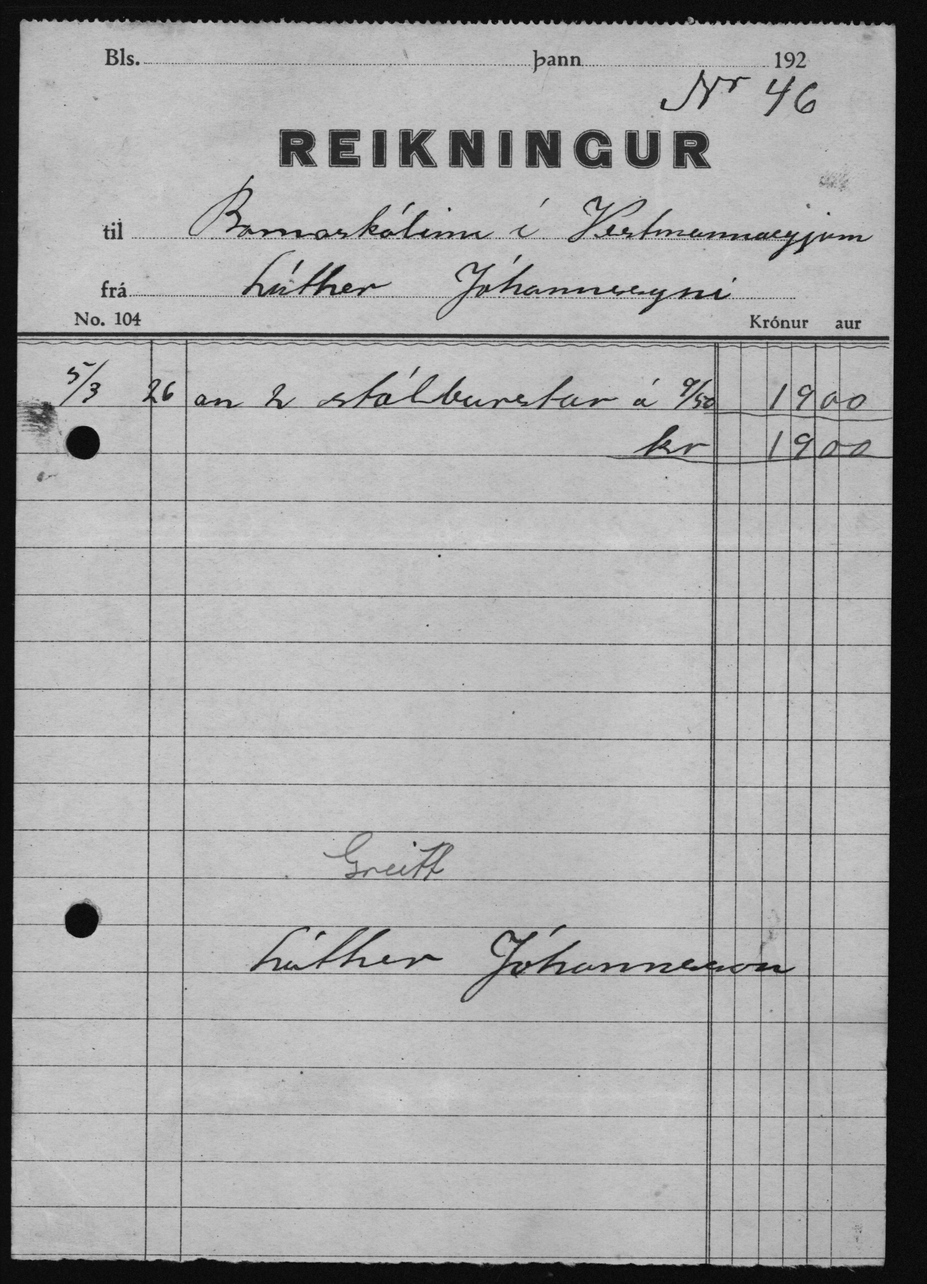 Bls. þann 192
Nr 46
REIKNINGUR
til Barnaskólinn í Vestmannaeyjum
frá Lúther Jóhannessyni
No. 104 Krónur aur
5/3 26 an 2 stálburstar á 9/50 19 00
kr 19 00
Greitt
Lúther Jóhannesson